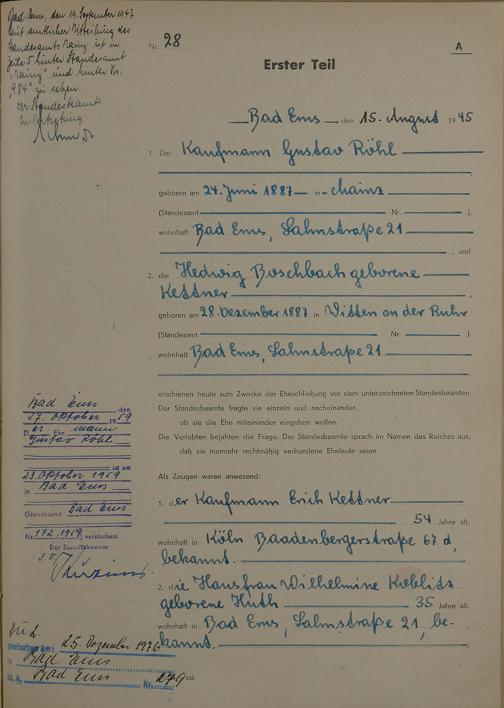 Bad Ems, den 19. September 1947
mit amtlicher Mitteilung des
Standesamts Mainz ist in
jede 5 hinter Standesamt
"Mainz" und hinter Nr.
"984" zu setzen.
Der Standesbeamte:
In Vertretung:
Nr. 28
A
Erster Teil
Bad Ems, den 15. August 1945
1. Der Kaufmann Gustav Röhl
geboren am 24. Juni 1887 in Mainz
(Standesamt Nr. ).
wohnhaft Bad Ems, Lahnstraße 21
, und
2. die Hedwig Boschbach geborene
Kettner
geboren am 28. Dezember 1887 in Witten an der Ruhr
(Standesamt Nr. ).
wohnhaft Bad Ems, Lahnstraße 21
erschienen heute zum Zwecke der Eheschließung vor dem unterzeichneten Standesbeamten.
Der Standesbeamte fragte sie einzeln und nacheinander,
ob sie die Ehe miteinander eingehen wollen.
Die Verlobten bejahten die Frage. Der Standesbeamte sprach im Namen des Reiches aus,
daß sie nunmehr rechtmäßig verbundene Eheleute seien.
Als Zeugen waren anwesend:
1. der Kaufmann Erich Kettner
54 Jahre alt,
wohnhaft in Köln Baadenbergerstraße 67 d,
bekannt.
2. die Hausfrau Wilhelmine Koblitz
geborene Huth 35 Jahre alt,
wohnhaft in Bad Ems, Lahnstraße 21, be-
kannt.
Bad Ems den
27. Oktober 1959
Der Ehemann
Gustav Röhl
ist am
23. Oktober 1959
in Bad Ems
(Standesamt Bad Ems
Nr. 172/1959) verstorben.
Der Standesbeamte
I.V.
zu 2.
gestorben am 25. Dezember 1976
in Bad Ems
St.A. Bad Ems Nr. 279